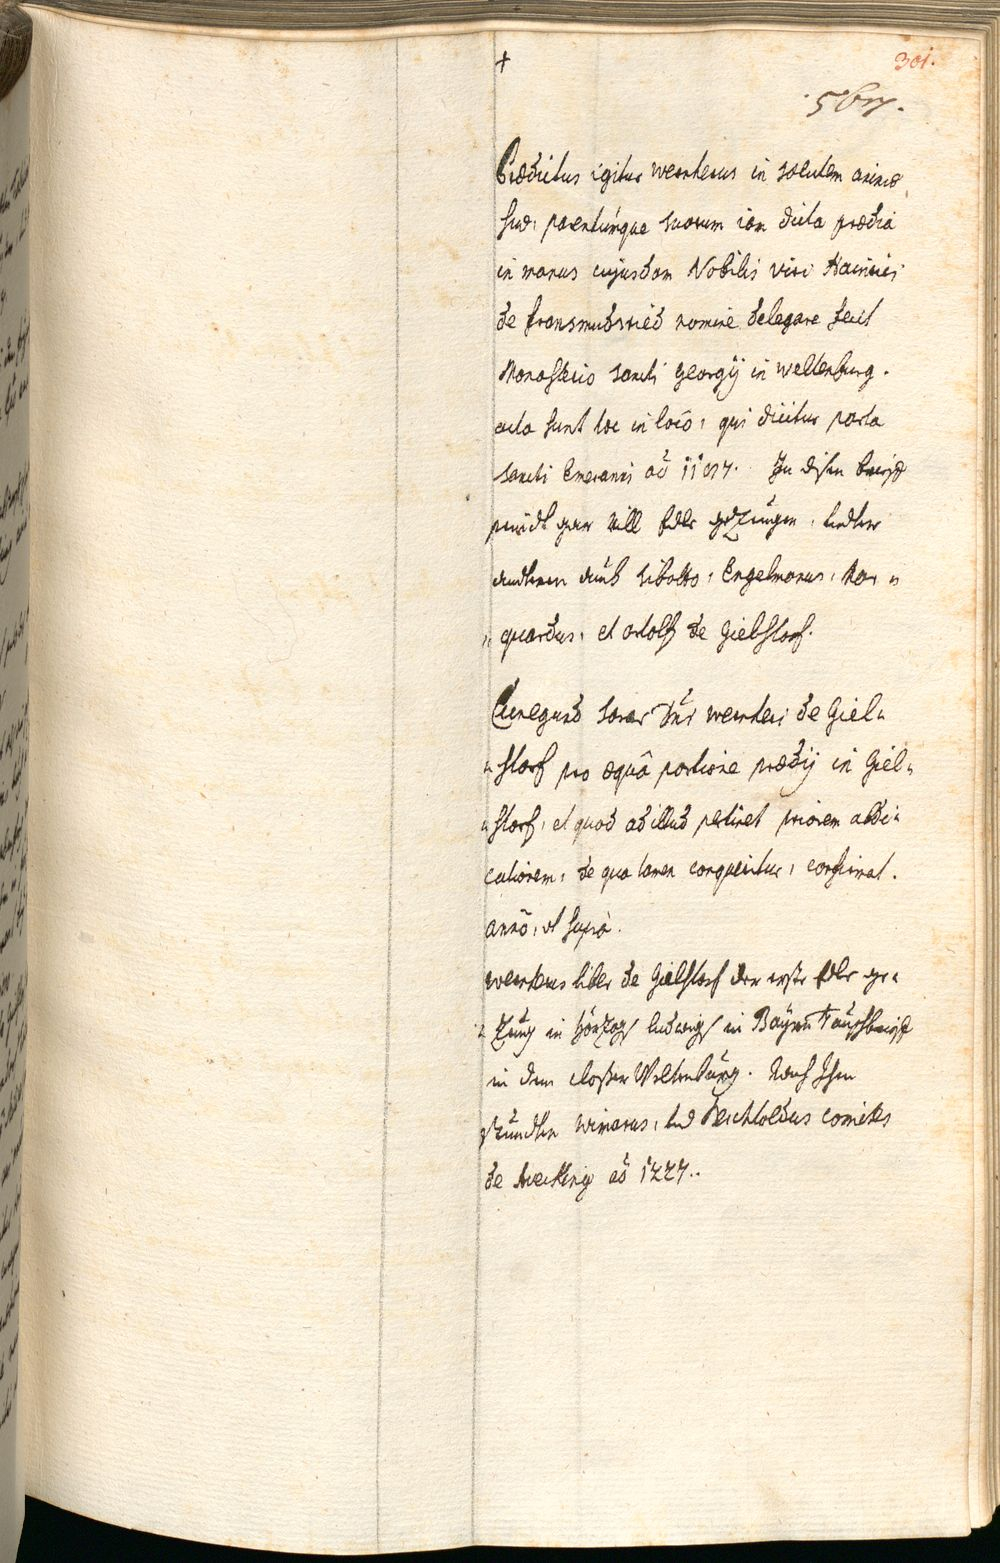 +
301.
567.
Prædictus igitur wernherus in salutem animæ
suæ, parentumque suorum iam dicta prædia
in manus cujusdam Nobilis viri Hainrici
de fransmudsried nomine delegare fecit
Monasterio sancti georgÿ in weltenburg.
acta sunt hæc in loco, qui dicitur porta
sancti Emerammi aõ In disem brieff
seindt gar vill Edle gezeugen, under
anderen auch Sibotto, Engelmarus, Mar=
=quardus, et ortolff de Gielstorf.
Cunegund soror Dni wernheri de Giel=
=storf pro æquâ portione prædÿ in Giel=
=storf, et quod ad illud pertinet priorem abdi=
cationem, de qua tamen conqueritur, confirmat.
anno, ut supra.
wernherus liber de Gielstorf der erste Edle ge=
=zeug in Hörzog Ludwigs in Baÿrn Tauschbrieff
in dem closter Weltenburg. Nach Ihm
stuenden und Berchtoldus comites
de 1227.